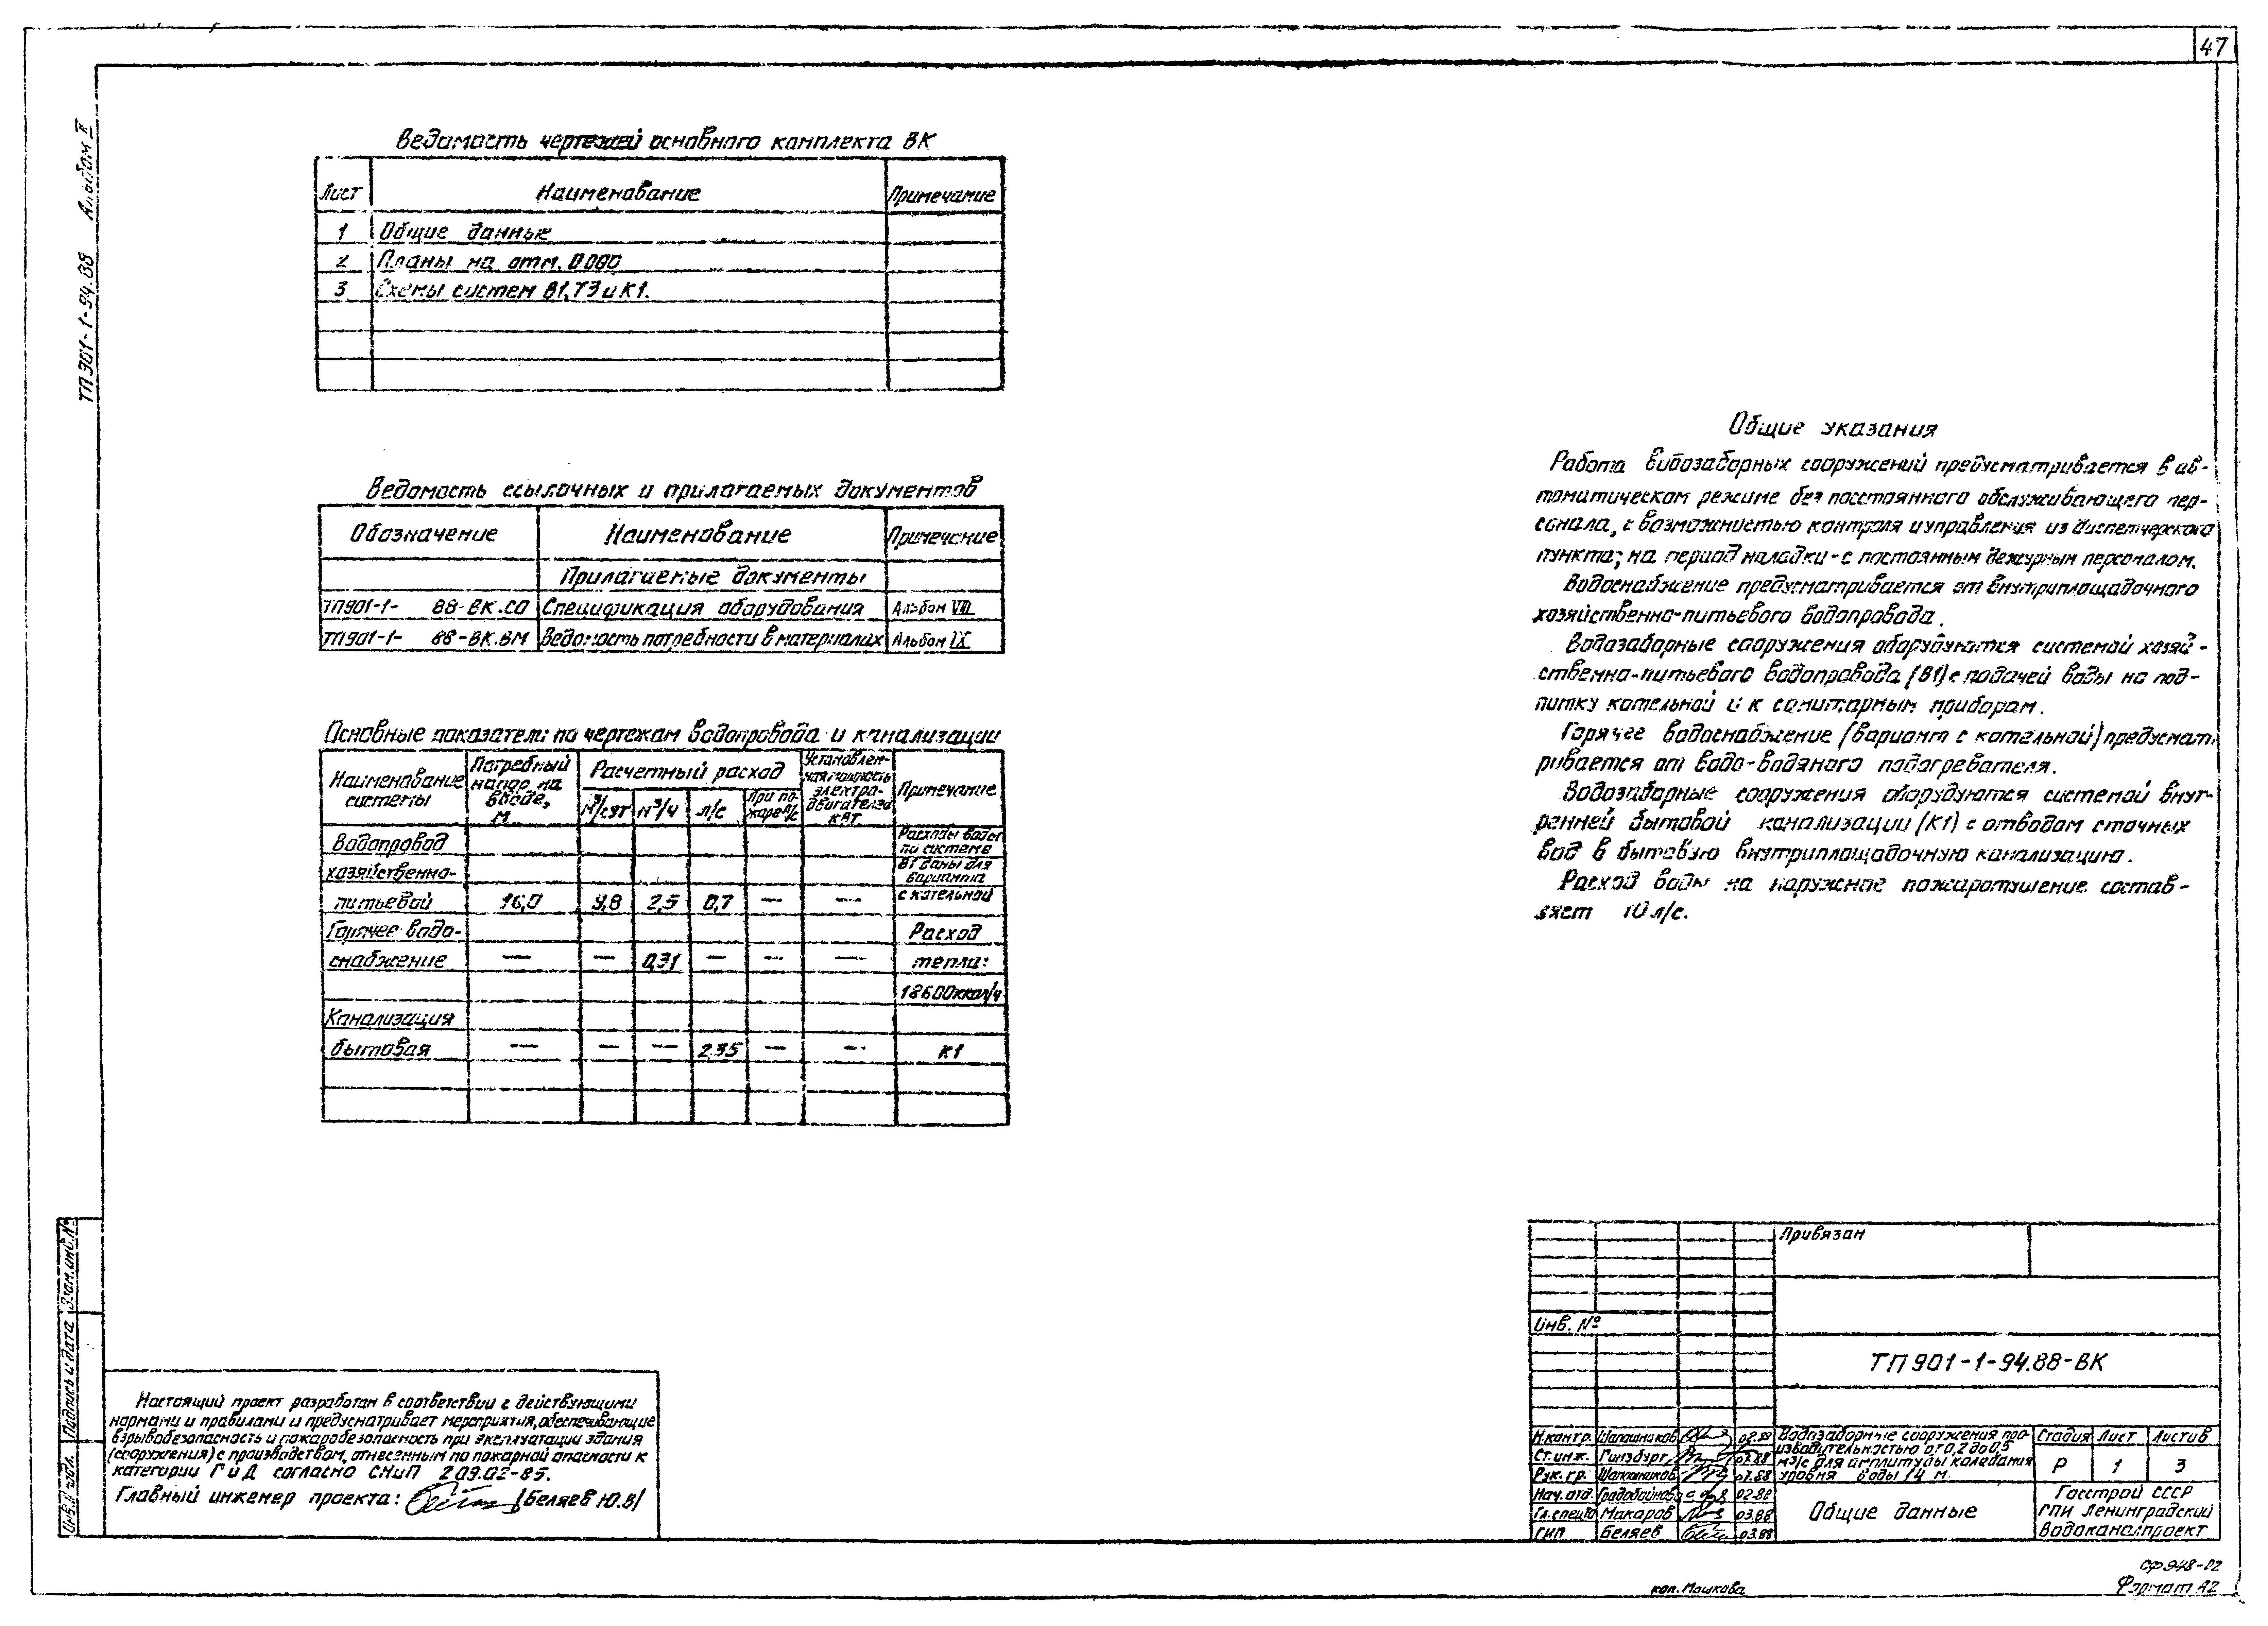 47
ТП 901-1-94.88 Альбом II
Ведомость чертежей основного комплекта ВК
Лист Наименование Примечание
1 Общие данные
2 Планы на отм. 0.000
3 Схемы систем В1, Т3 и К1.
Ведомость ссылочных и прилагаемых документов
Обозначение Наименование Примечание
Прилагаемые документы
ТП901-1- 88-ВК.СО Спецификация оборудования Альбом VIII
ТП901-1- 88-ВК.ВМ Ведомость потребности в материалах Альбом IX
Основные показатели по чертежам водопровода и канализации
Наименование системы Потребный напор на вводе, м Расчетный расход Установленная мощность электродвигателей кВт Примечание
м³/сут м³/ч л/с При пожаре л/с
Водопровод Расходы воды
по системе
хозяйственно- В1 даны для
варианта
питьевой 16,0 9,8 2,5 0,7 — — с котельной
Горячее водо- Расход
снабжение — — 0,31 — — — тепла:
18600ккал/ч
Канализация
бытовая — — — 2.35 — — К1
Общие указания
Работа водозаборных сооружений предусматривается в ав-
томатическом режиме без постоянного обслуживающего пер-
сонала, с возможностью контроля и управления из диспетчерского
пункта; на период наладки - с постоянным дежурным персоналом.
Водоснабжение предусматривается от внутриплощадочного
хозяйственно-питьевого водопровода.
Водозаборные сооружения оборудуются системой хозяй-
ственно-питьевого водопровода (В1) с подачей воды на под-
питку котельной и к санитарным приборам.
Горячее водоснабжение (вариант с котельной) предусмат-
ривается от водо-водяного подогревателя.
Водозаборные сооружения оборудуются системой внут-
ренней бытовой канализации (К1) с отводом сточных
вод в бытовую внутриплощадочную канализацию.
Расход воды на наружное пожаротушение состав-
ляет 10 л/с.
Взам. инв. №
Подпись и дата
Инв. № подл.
Настоящий проект разработан в соответствии с действующими
нормами и правилами и предусматривает мероприятия, обеспечивающие
взрывобезопасность и пожаробезопасность при эксплуатации здания
(сооружения) с производством, отнесенным по пожарной опасности к
категории Г и Д согласно СНиП 2.09.02-85.
Главный инженер проекта: /Беляев Ю.В/
Привязан
Инв. №
ТП 901-1-94.88-ВК
Н.контр. Шапашников 02.88
Ст.инж. Гинзбург 02.88
Рук. гр. Шапашников 02.88
Нач. отд. Градобойнова 02.88
Гл.спец. Макаров 03.88
ГИП Беляев 03.88
Водозаборные сооружения про-
изводительностью от 0,2 до 0,5
м³/с для амплитуды колебания
уровня воды 14 м.
Стадия Лист Листов
Р 1 3
Общие данные
Госстрой СССР
ГПИ Ленинградский
Водоканалпроект
кол. Машкова
СФ 948-02
Формат А2